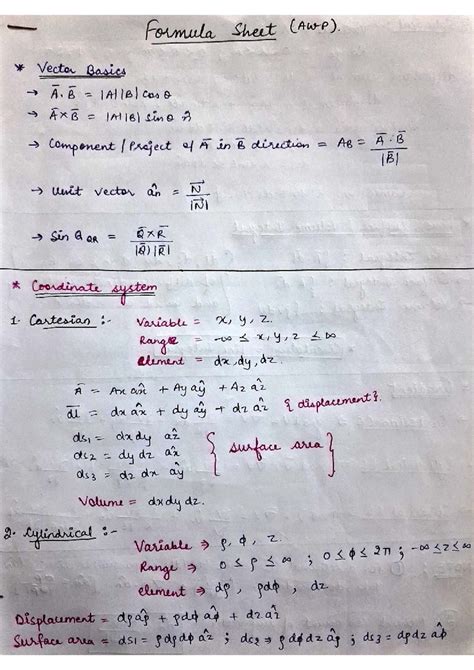 Formula Sheet (AWP).
* Vector Basics
→ A̅ . B̅ = |A| |B| cos θ
→ A̅ × B̅ = |A| |B| sin θ n̂
→ Component / Project of A̅ in B̅ direction = AB = A̅ . B̅ / |B̅|
→ Unit vector an̂ = N̅ / |N̅|
→ Sin Q QR = Q̅ × R̅ / |Q̅| |R̅|
* Coordinate system
1. Cartesian :- Variable = x, y, z.
Range = -∞ ≤ x, y, z ≤ ∞
Element = dx, dy, dz.
A̅ = Ax ax̂ + Ay aŷ + Az aẑ
dl̅ = dx ax̂ + dy aŷ + dz aẑ { displacement }.
ds1 = dx dy aẑ
ds2 = dy dz ax̂ { surface area }
ds3 = dz dx aŷ
Volume = dx dy dz.
2. Cylindrical :-
Variable → ρ, φ, z.
Range → 0 ≤ ρ ≤ ∞ ; 0 ≤ φ ≤ 2π ; -∞ ≤ z ≤ ∞
element → dρ, ρdφ, dz
Displacement = dρ aρ̂ + ρdφ aφ̂ + dz aẑ
Surface area = ds1 = ρdρdφ aẑ ; ds2 → ρdφdz aρ̂ ; ds3 = dρdz aφ̂